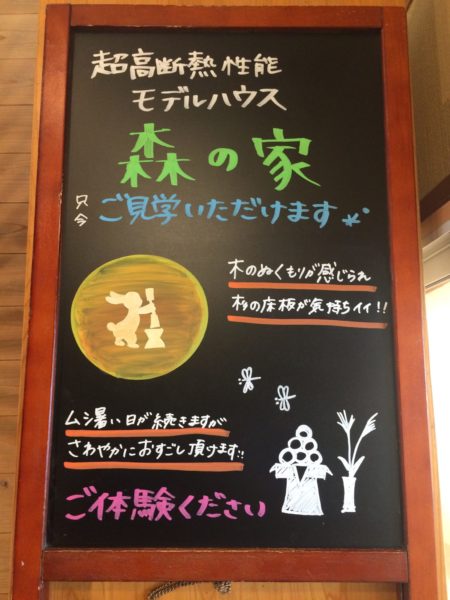 超高断熱性能
モデルハウス
森の家
只今
ご見学いただけます
木のぬくもりが感じられ
杉の床板が気持ちイイ!!
ムシ暑い日が続きますが
さわやかにおすごし頂けます!!
ご体験ください